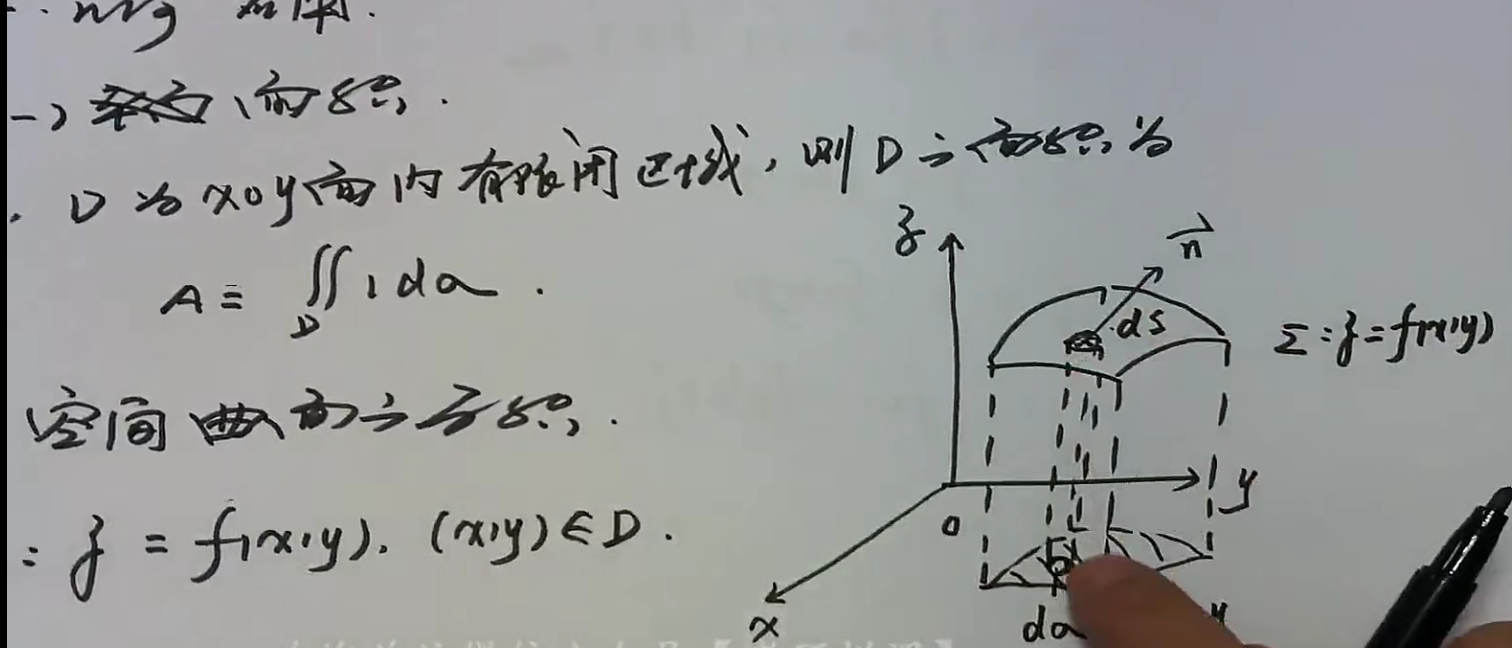 一) 面积.
D为xoy面内有限闭区域, 则D之面积为
A = ∬ 1 dσ .
D
空间曲面之面积.
: z = f(x,y), (x,y)∈D.
z
n
dS
Σ: z = f(x,y)
y
0
x
dσ